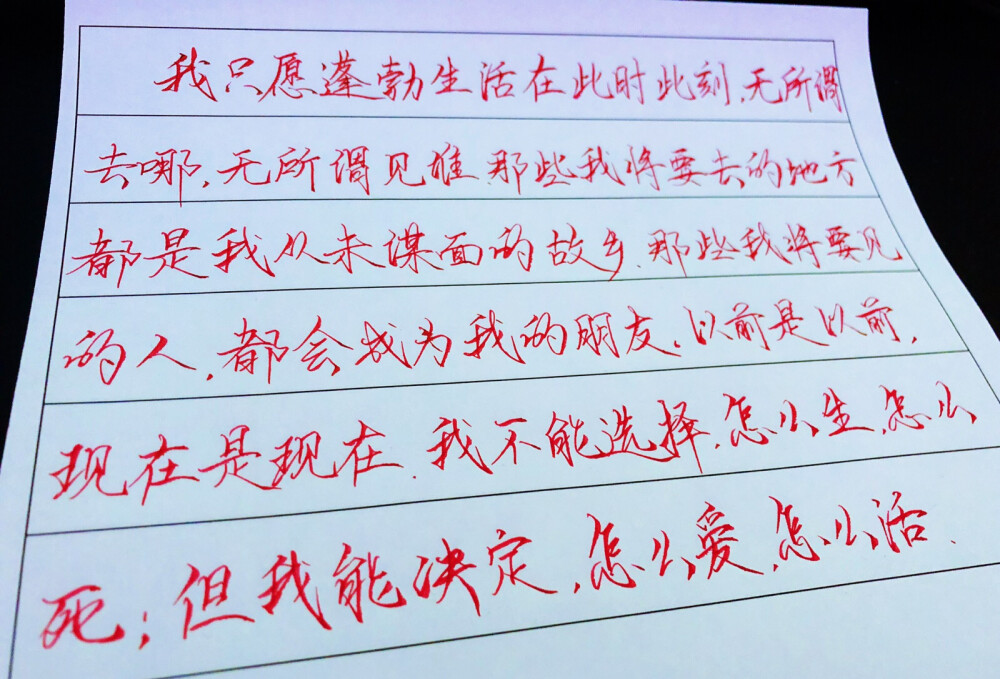 我只愿蓬勃生活在此时此刻,无所谓
去哪,无所谓见谁.那些我将要去的地方
都是我从未谋面的故乡.那些我将要见
的人,都会成为我的朋友.以前是以前,
现在是现在.我不能选择,怎么生,怎么
死;但我能决定,怎么爱,怎么活.